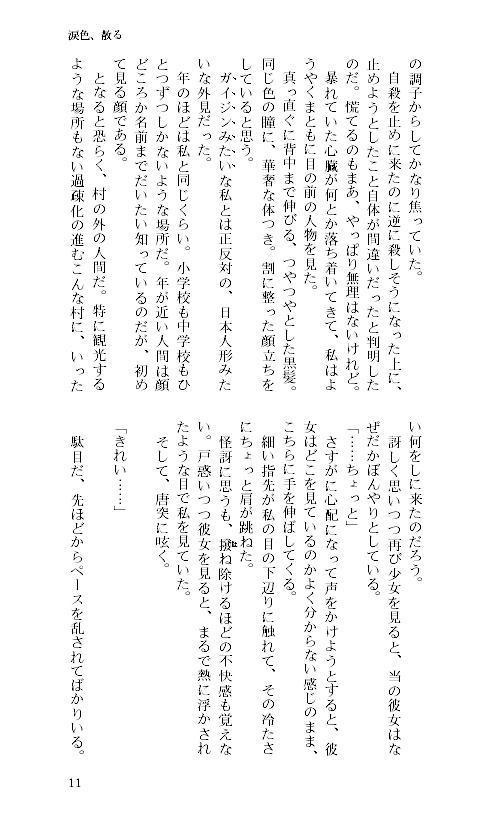 涙色、散る
の調子からしてかなり焦っていた。
自殺を止めに来たのに逆に殺しそうになった上に、
止めようとしたこと自体が間違いだったと判明した
のだ。慌てるのもまあ、やっぱり無理はないけれど。
暴れていた心臓が何とか落ち着いてきて、私はよ
うやくまともに目の前の人物を見た。
真っ直ぐに背中まで伸びる、つやつやとした黒髪。
同じ色の瞳に、華奢な体つき。割に整った顔立ちを
していると思う。
ガイジンみたいな私とは正反対の、日本人形みた
いな外見だった。
年のほどは私と同じくらい。小学校も中学校もひ
とつずつしかないような場所だ。年が近い人間は顔
どころか名前までだいたい知っているのだが、初め
て見る顔である。
となると恐らく、村の外の人間だ。特に観光する
ような場所もない過疎化の進むこんな村に、いった
い何をしに来たのだろう。
訝しく思いつつ再び少女を見ると、当の彼女はな
ぜだかぼんやりとしている。
「……ちょっと」
さすがに心配になって声をかけようとすると、彼
女はどこを見ているのかよく分からない感じのまま、
こちらに手を伸ばしてくる。
細い指先が私の目の下辺りに触れて、その冷たさ
にちょっと肩が跳ねた。
怪訝に思うも、撥ね除けるほどの不快感も覚えな
い。戸惑いつつ彼女を見ると、まるで熱に浮かされ
たような目で私を見ていた。
そして、唐突に呟く。
「きれい……」
駄目だ、先ほどからペースを乱されてばかりいる。
11